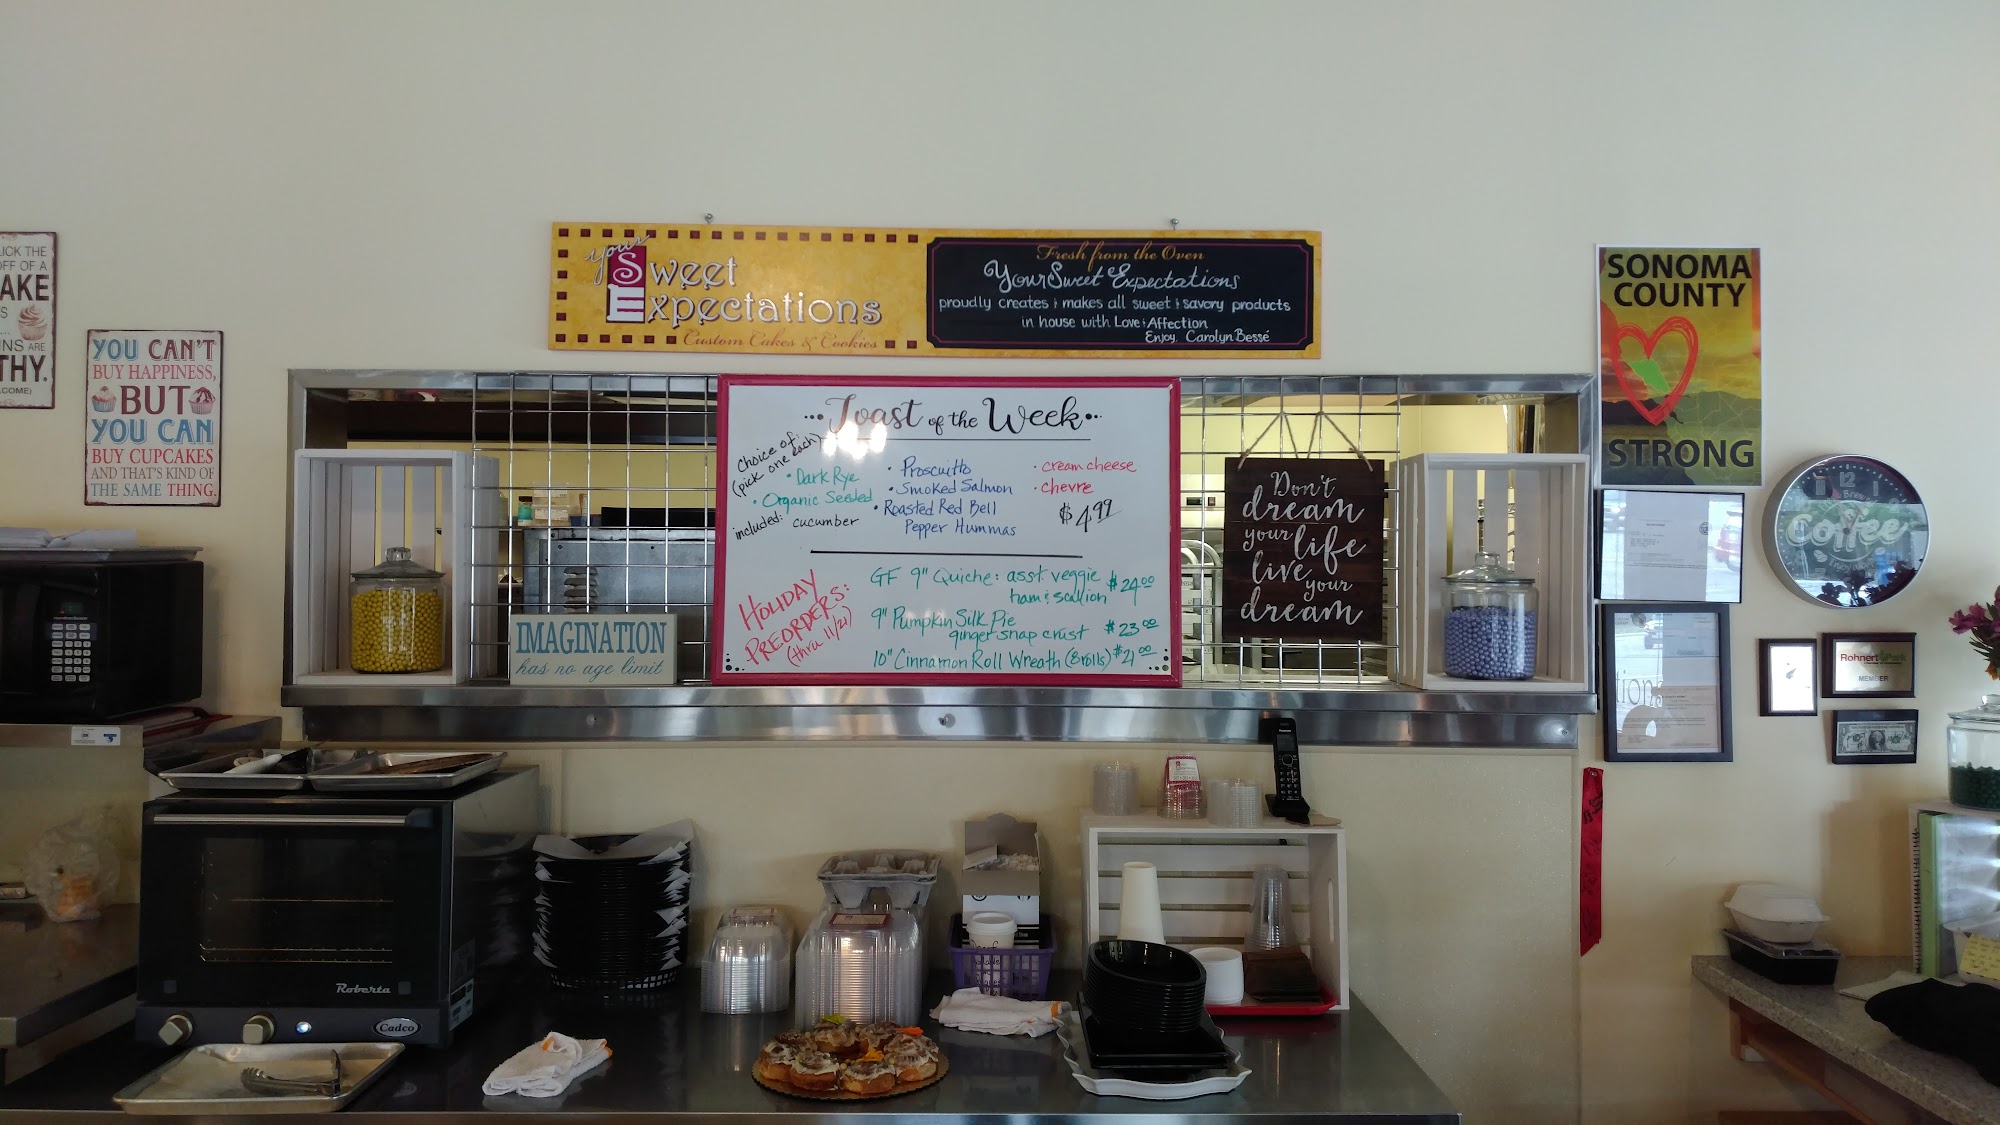 LICK THE
OFF OF A
AKE
INS ARE
THY.
COME)
YOU CAN'T
BUY HAPPINESS,
BUT
YOU CAN
BUY CUPCAKES
AND THAT'S KIND OF
THE SAME THING.
your
Sweet
Expectations
Custom Cakes & Cookies
Fresh from the Oven
Your Sweet Expectations
proudly creates & makes all sweet & savory products
in house with Love & Affection
Enjoy, Carolyn Bessé
Toast of the Week
Choice of:
(pick one each)
• Dark Rye
• Organic Seeded
included: cucumber
• Proscuitto
• Smoked Salmon
• Roasted Red Bell
Pepper Hummas
• cream cheese
• chevre
$4.99
HOLIDAY
PREORDERS:
(thru 11/21)
GF 9" Quiche: asst. veggie
ham & scallion $24.00
9" Pumpkin Silk Pie
ginger snap crust $23.00
10" Cinnamon Roll Wreath (8 rolls) $21.00
IMAGINATION
has no age limit
Don't
dream
your life
live your
dream
SONOMA
COUNTY
STRONG
12
coffee
Rohnert Park
MEMBER
Roberta
Cadco
Panasonic